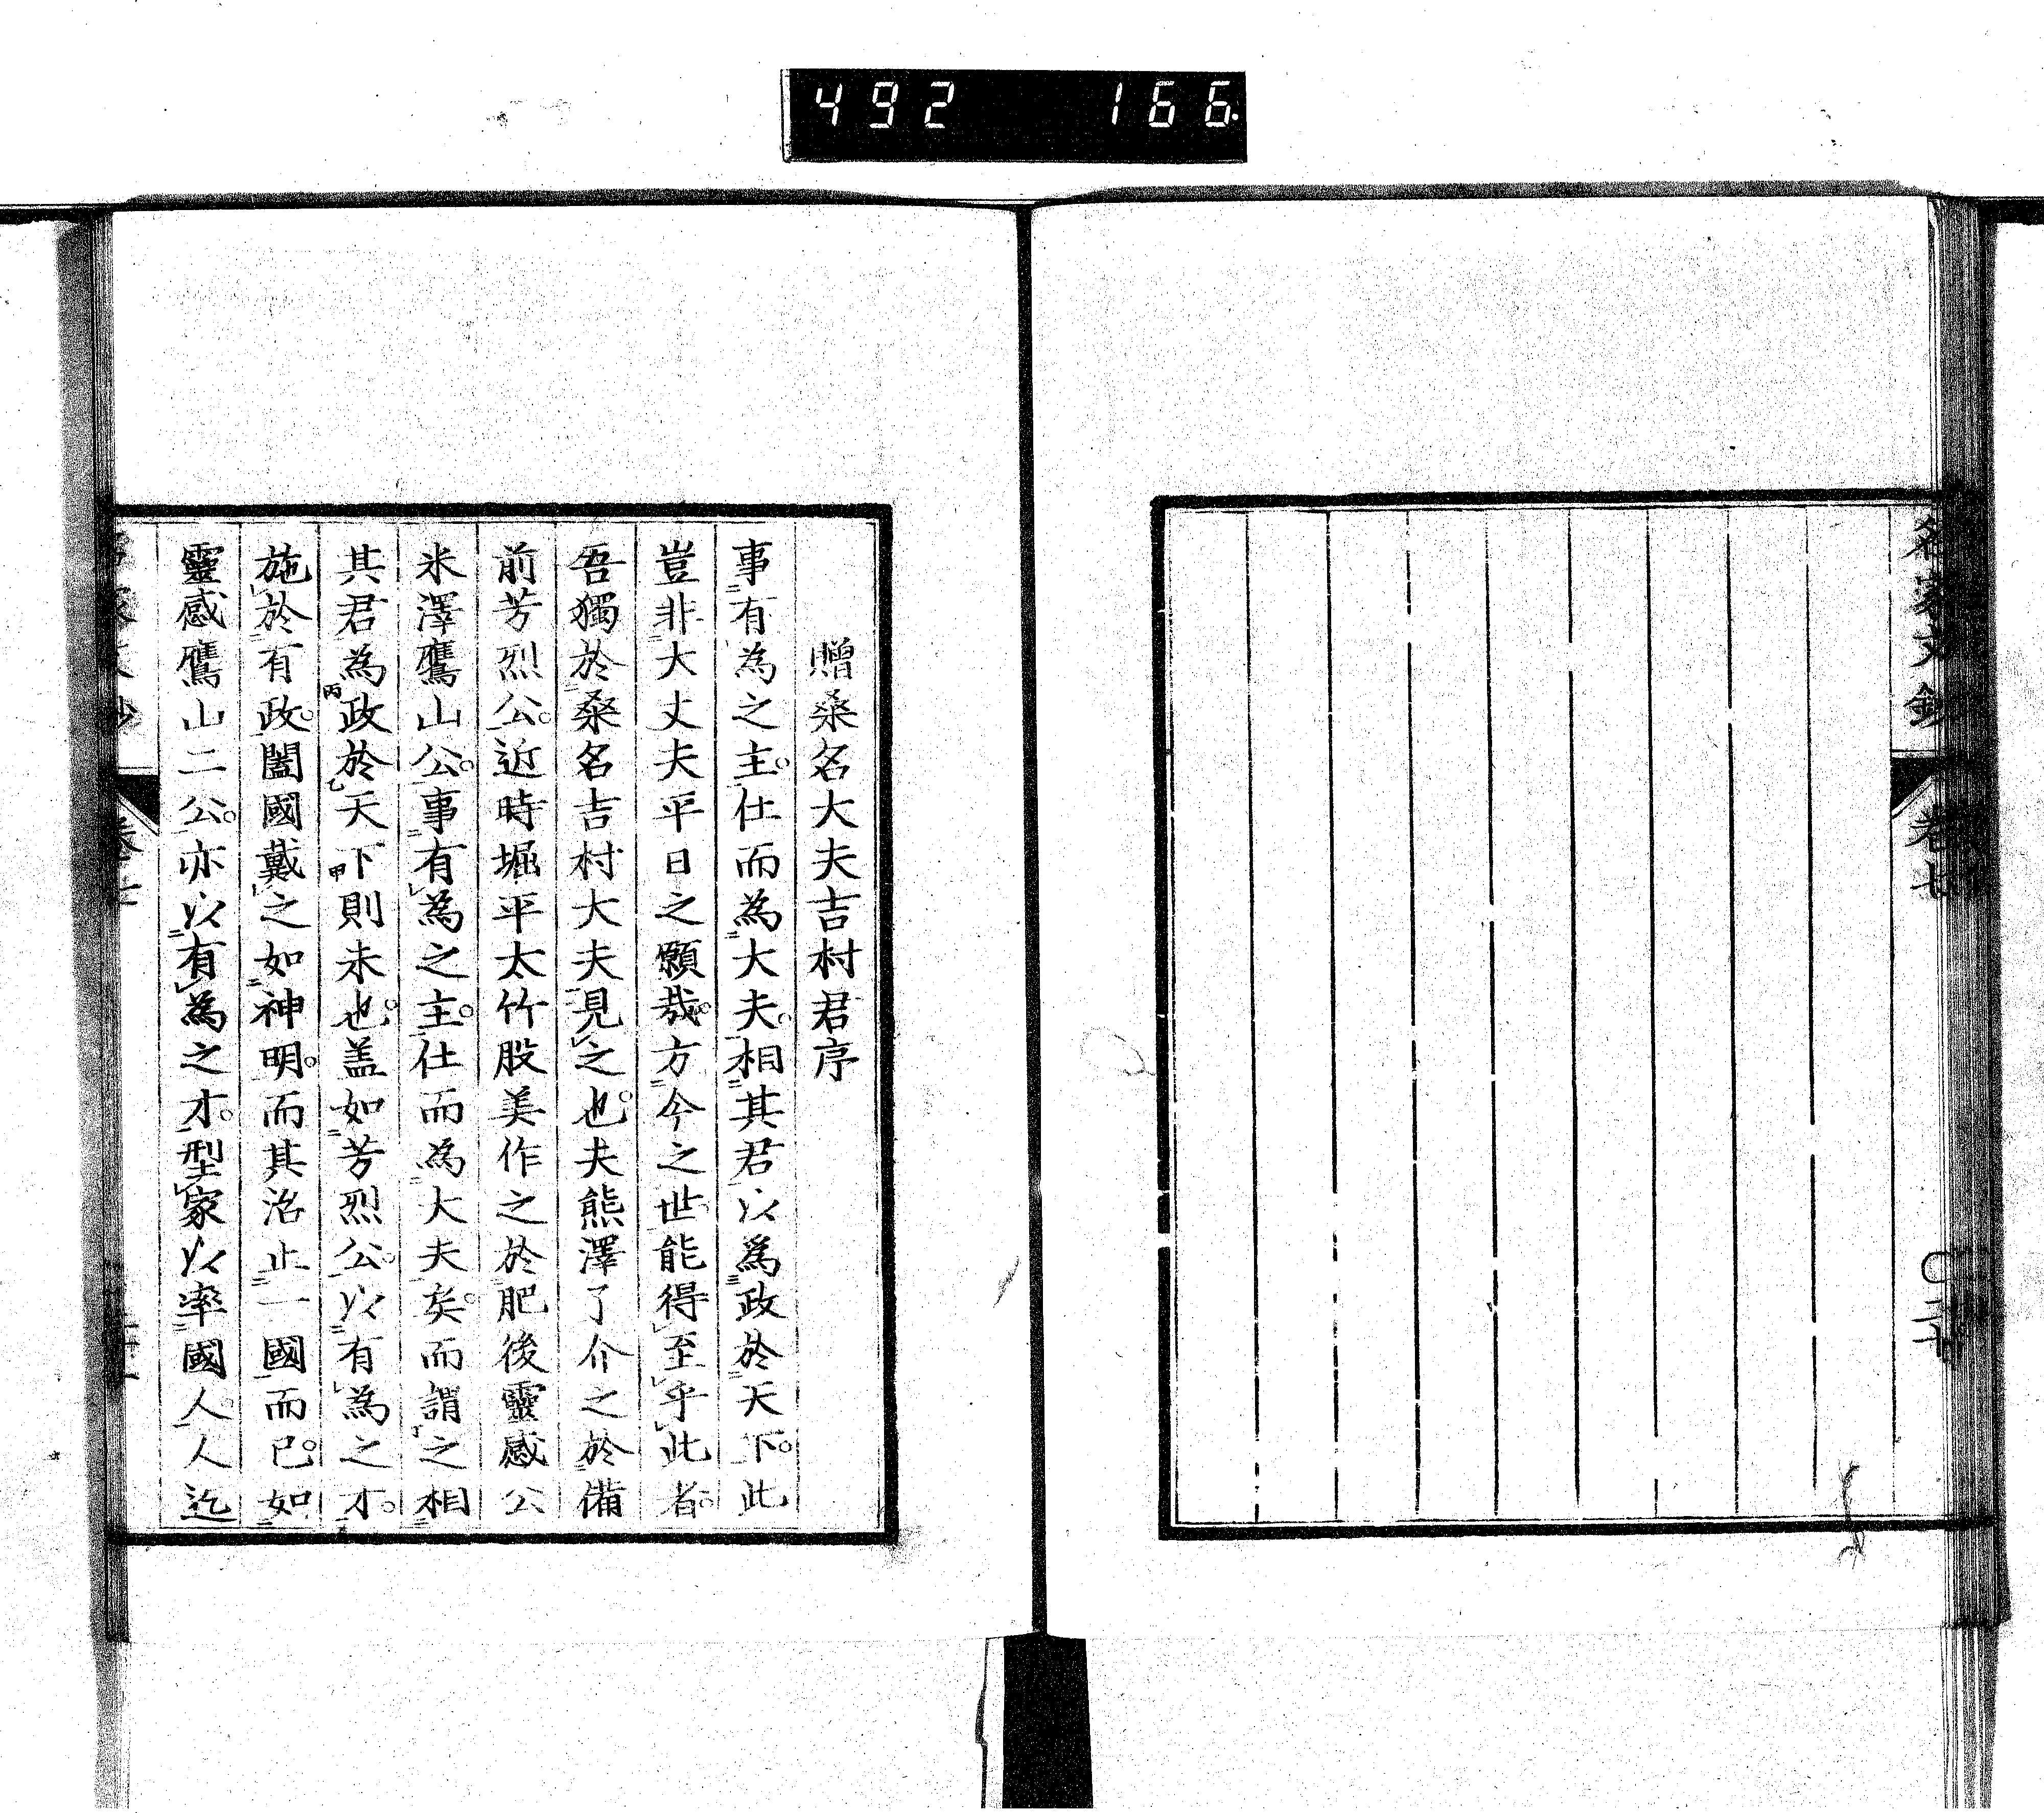 492 166
名家文鈔 卷七 〇二十
贈桑名大夫吉村君序
事有為之主。仕而為大夫。相其君以為政於天下。此
豈非大丈夫平日之願哉。方今之世。能得至乎此者。
吾獨於桑名吉村大夫見之也。夫熊澤了介之於備
前芳烈公。近時堀平太竹股美作之於肥後靈感公
米澤鷹山公。事有為之主。仕而為大夫矣。而謂之相
其君為政於天下則未也。盖如芳烈公。以有為之才。
施於有政。闔國戴之如神明。而其治止一國而已。如
靈感鷹山二公。亦以有為之才。型家以率國人。人迄